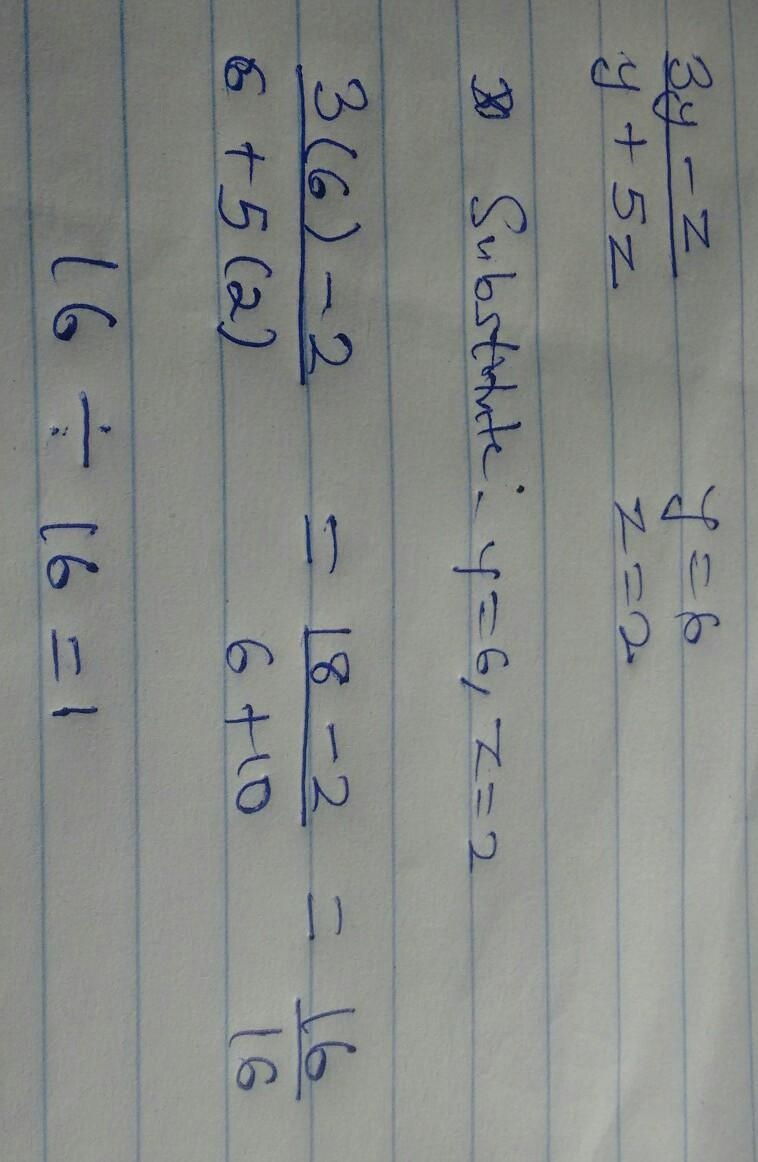 3y - z / y + 5z    y = 6
z = 2
Substitute:- y = 6, z = 2
3(6) - 2 / 6 + 5(2) = 18 - 2 / 6 + 10 = 16 / 16
16 ÷ 16 = 1